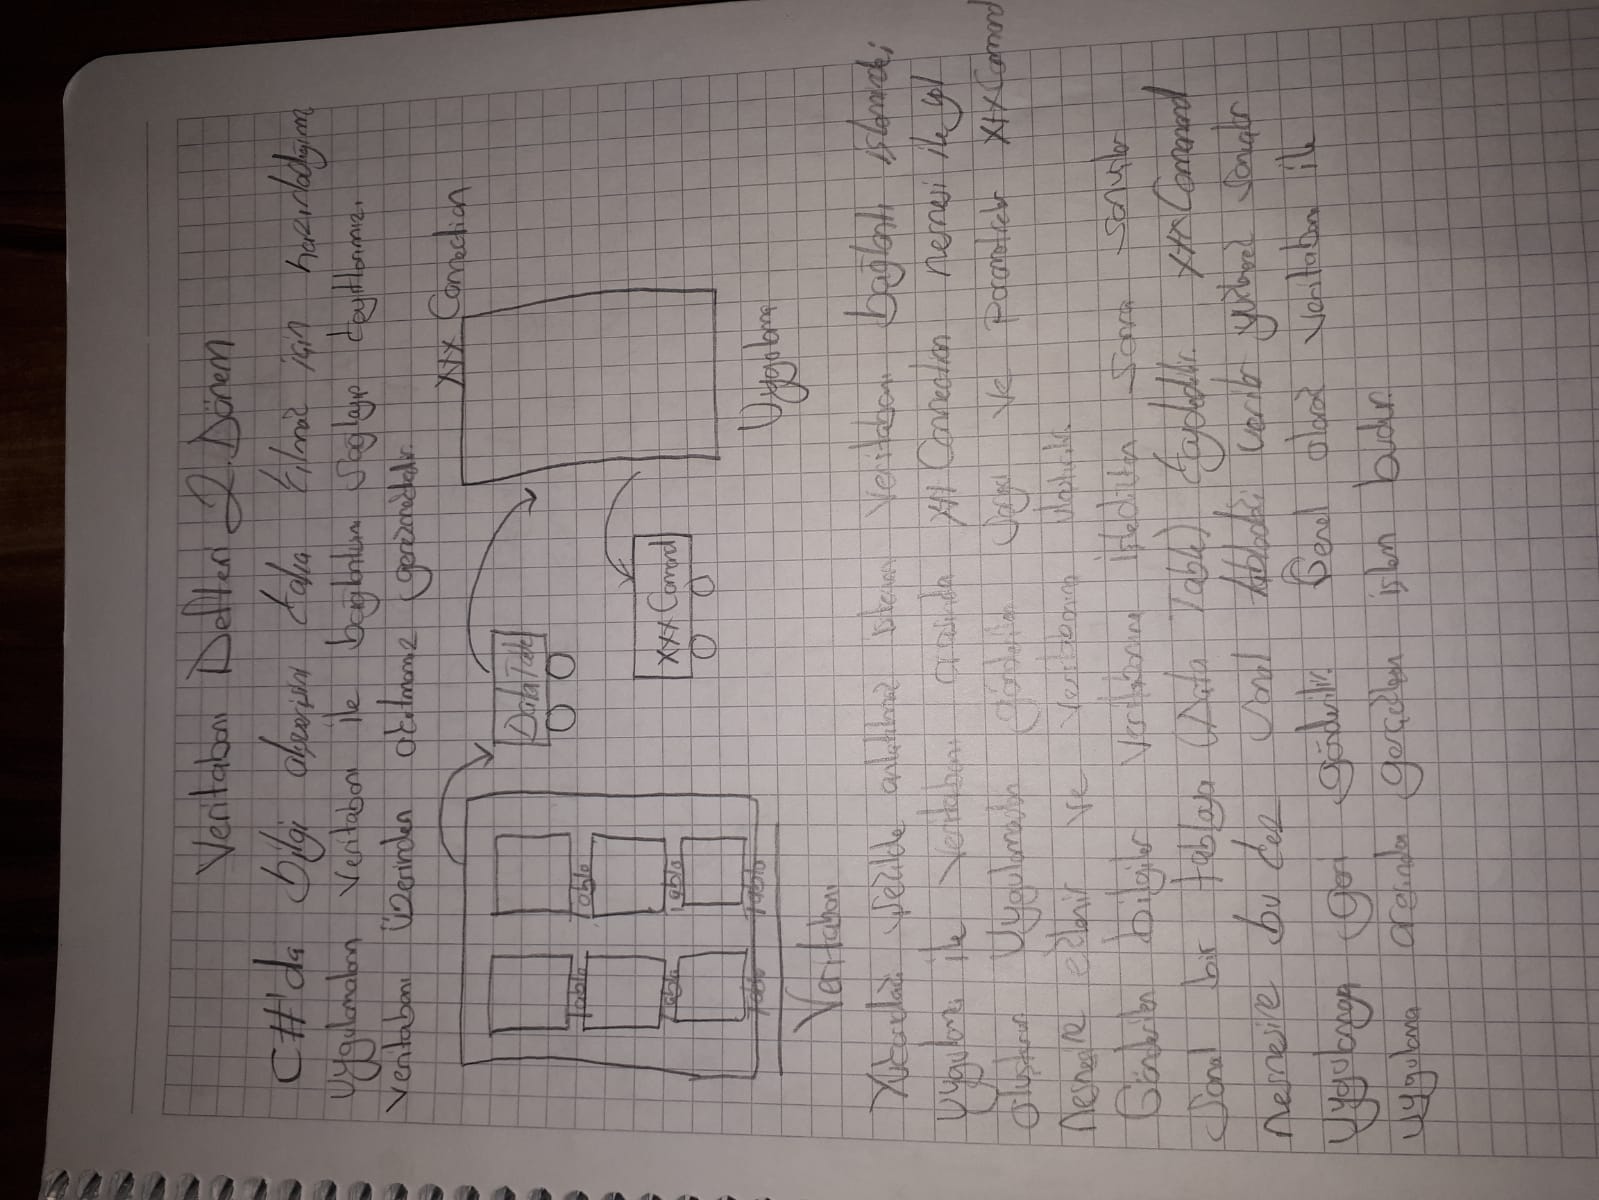 Veritabanı Defteri 2. Dönem
C#'da bilgi akışını daha kılmak için hazırladığım
uygulamaları veritabanı ile bağlantısını sağlayıp kayıtlarımızı
veritabanı üzerinden okutmamız gerekmektedir.
XXX Connection
DataTable
XXX Command
Tablo Tablo
Tablo Tablo
Tablo Tablo
Veritabanı
Uygulama
Yukarıdaki şekilde anlatılmak istenen veritabanı bağlantı işlemindeki
uygulama ile veritabanı arasında XXX Connection nesnesi ile yol
oluşturur Uygulamadan gönderilen sorgu ve parametreler XXX Command
nesnesine eklenir ve veritabanına iletilir.
Gönderilen bilgiler veritabanına iletildikten sonra sonuçlar
sanal bir tabloya (Data Table) kaydedilir. XXX Command
nesnesine bu kez sanal tablodaki veriler yüklenerek sonuçlar
uygulamaya geri gönderilir. Genel olarak veritabanı ile
uygulama arasında gerçekleşen işlem budur.